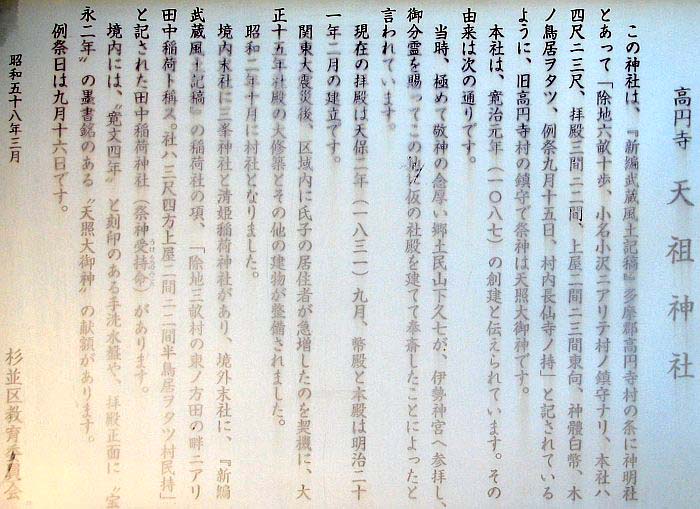 高円寺 天祖神社
この神社は、『新編武蔵風土記稿』多摩郡高円寺村の条に神明社
とあって「除地六畝十歩、小名小沢ニアリテ村ノ鎮守ナリ、本社ハ
四尺ニ三尺、拝殿三間ニ二間、上屋二間ニ三間東向、神體白幣、木
ノ鳥居ヲタツ、例祭九月十五日、村内長仙寺ノ持」と記されている
ように、旧高円寺村の鎮守で祭神は天照大御神です。
本社は、寛治元年（一〇八七）の創建と伝えられています。その
由来は次の通りです。
当時、極めて敬神の念厚い郷土民山下久七が、伊勢神宮へ参拝し、
御分霊を賜ってこの地に仮の社殿を建てて奉斎したことによったと
言われています。
現在の拝殿は天保二年（一八三一）九月、幣殿と本殿は明治二十
一年二月の建立です。
関東大震災後、区域内に氏子の居住者が急増したのを契機に、大
正十五年社殿の大修築とその他の建物が整備されました。
昭和二年十月に村社となりました。
境内末社に三峯神社と清姫稲荷神社があり、境外末社に、『新編
武蔵風土記稿』の稲荷社の項、「除地三畝村の東ノ方田の畔ニアリ
田中稲荷ト稱ス。社ハ三尺四方上屋二間ニ二間半鳥居ヲタツ村民持」
と記された田中稲荷神社（祭神受持命）があります。
境内には、〝寛文四年〟と刻印のある手洗水盤や、拝殿正面に〝宝
永二年〟の墨書銘のある〝天照大御神〟の献額があります。
例祭日は九月十六日です。
昭和五十八年三月
杉並区教育委員会。